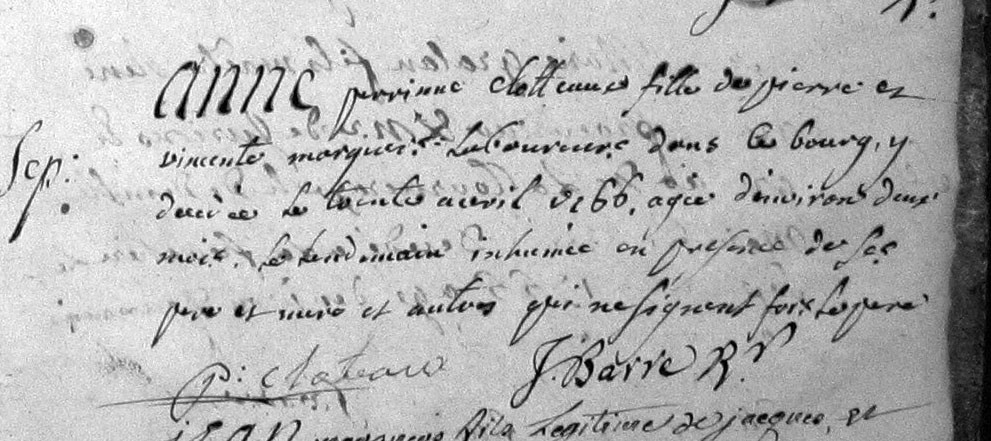 Sep:
ANNE perrinne Clotteaux fille de pierre et
vincente marquer. Laboureurs dans le bourg, y
decedee Le trente avril 1766. agée d'environ deux
mois. Le lendemain inhumée en presence de ses
pere et mere et autres qui ne signent fors Le pere
p: clateau J. Barre Rr
JEAN fils Legitime de jacques, et